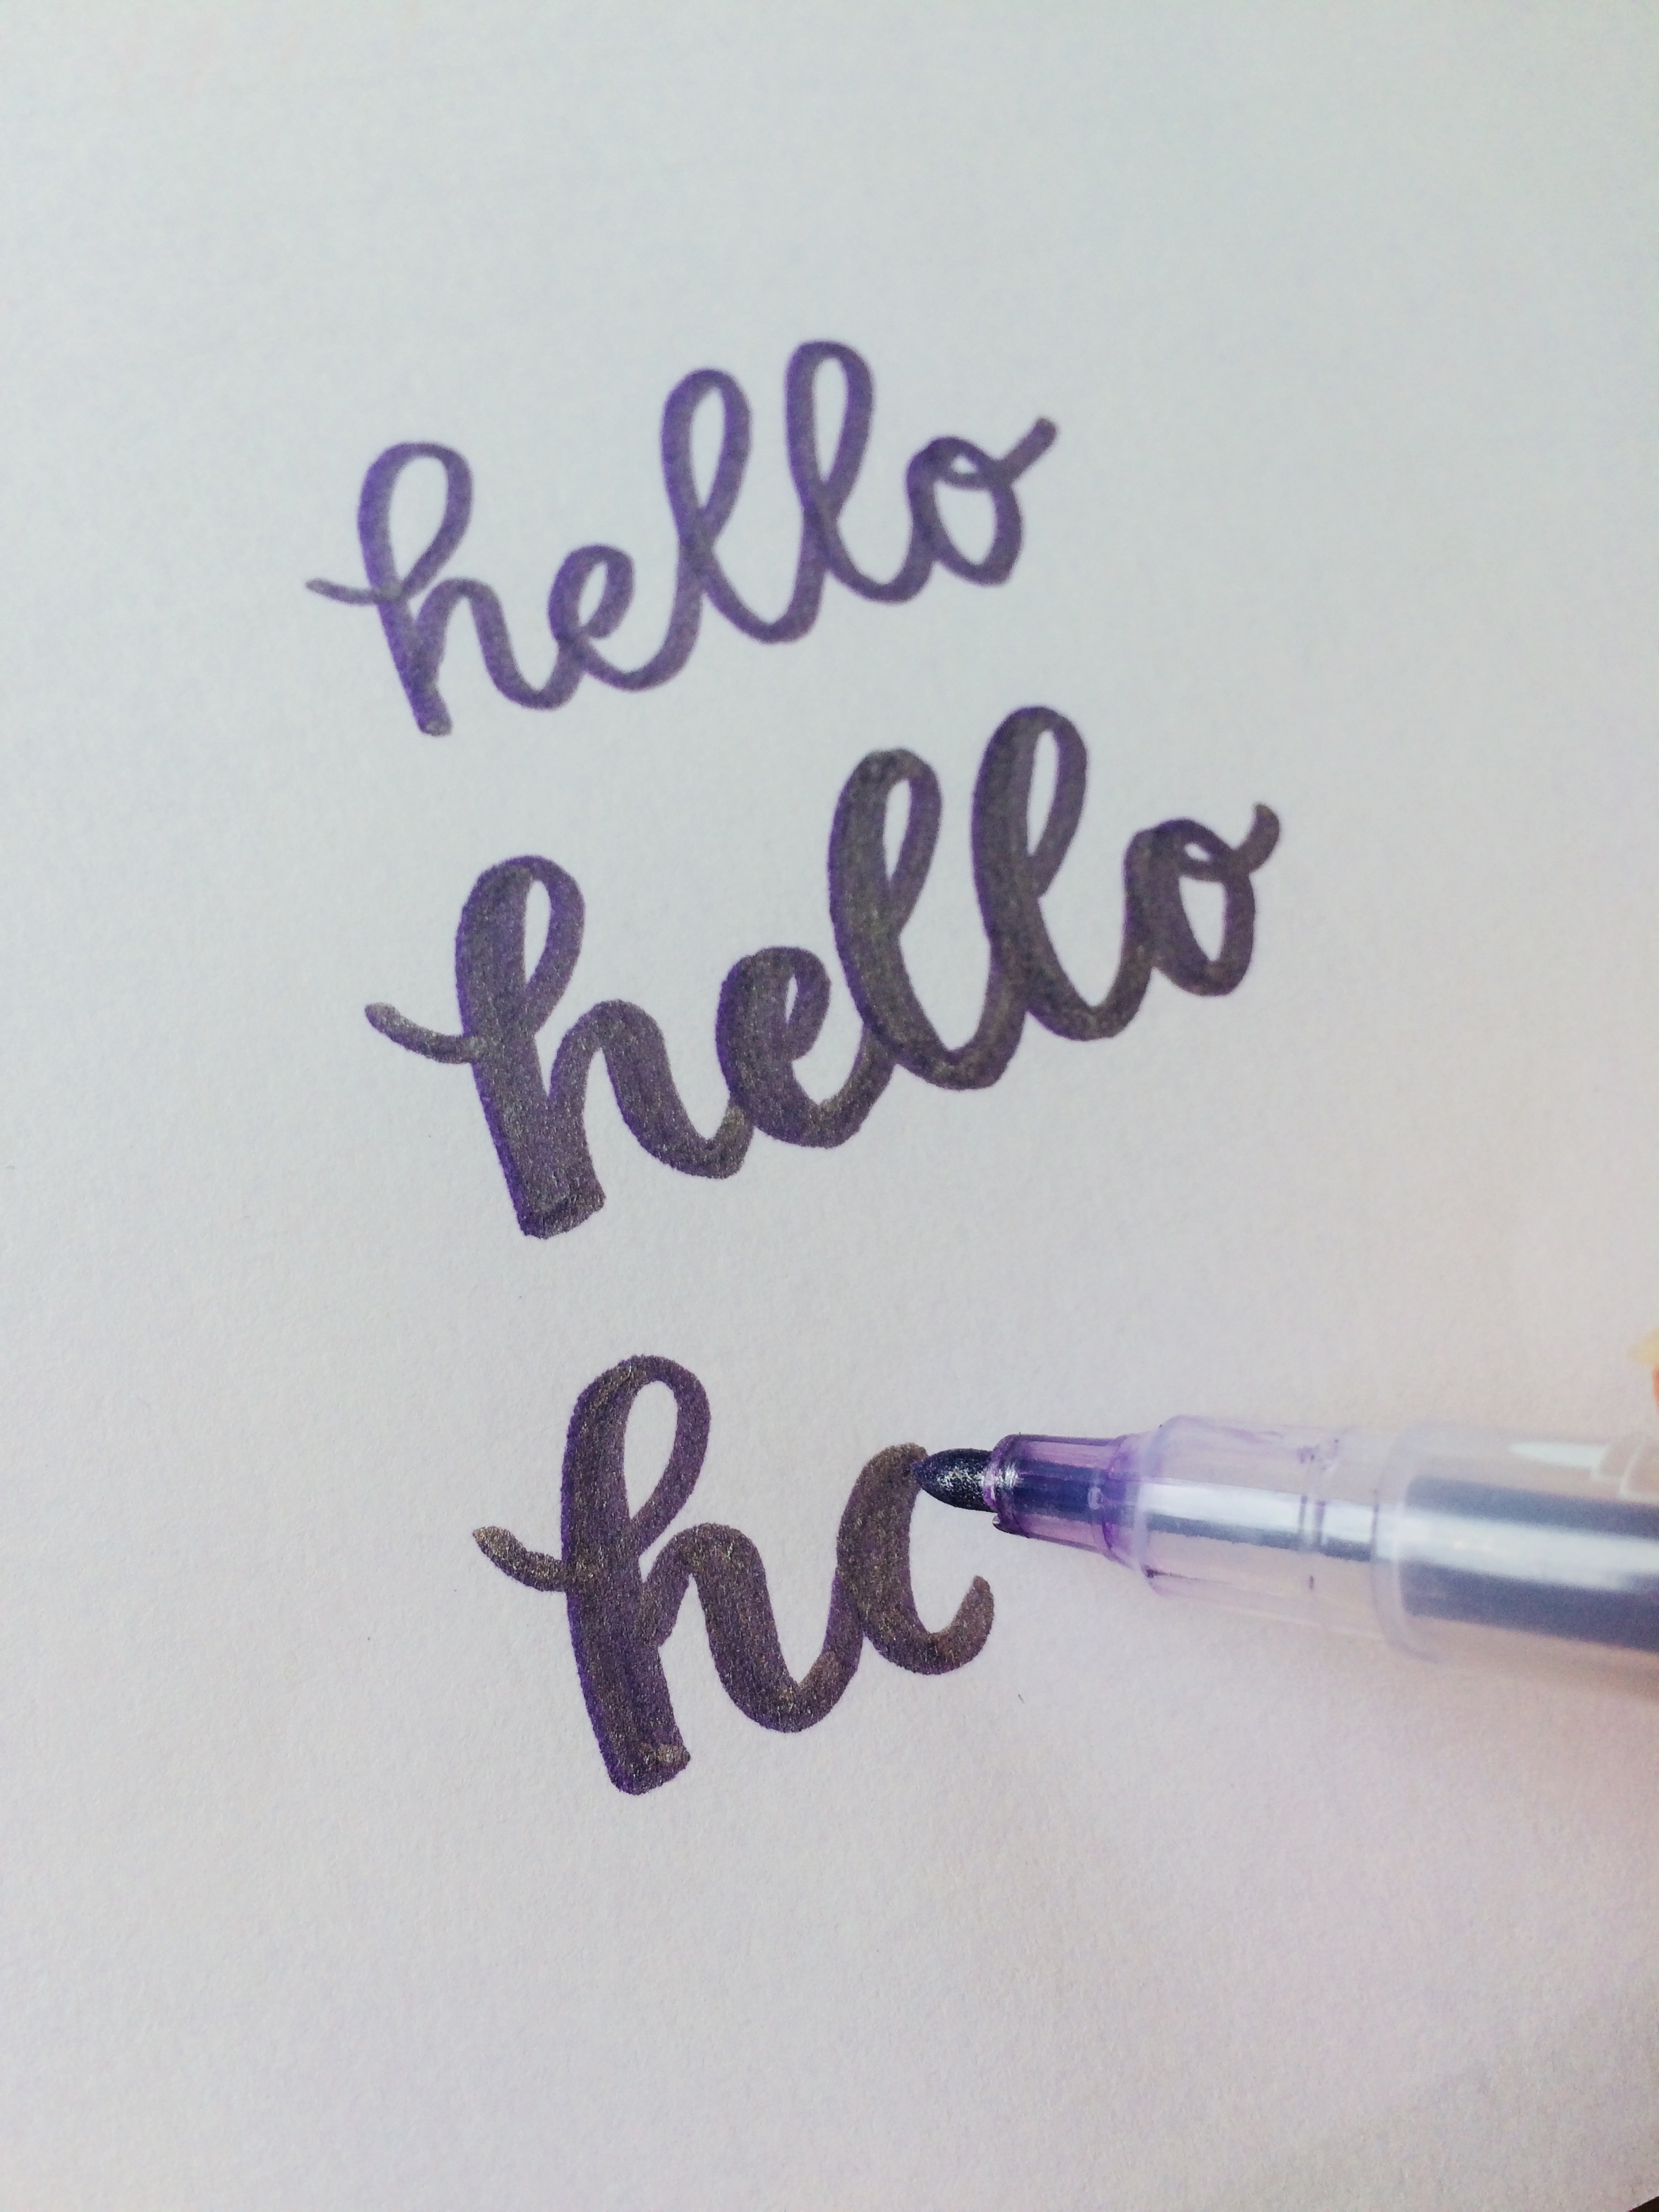 hello
hello
hc